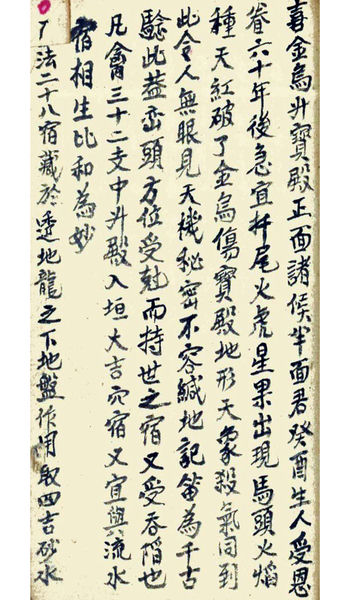 喜金烏升寶殿正面諸侯半面君癸酉生人受恩
眷六十年後急宜杆尾火虎星果出現馬頭火焰
種天紅破了金烏傷寶殿地形天象殺氣同到
此令人無眼見天機秘密不容緘地記留為千古
驗此葢巒頭方位受尅而持世之宿又受吞陷也
凡禽三十二支中升殿入垣大吉穴宿又宜與流水
宿相生比和為妙
法二十八宿藏於透地龍之下地盤作用取四吉砂水